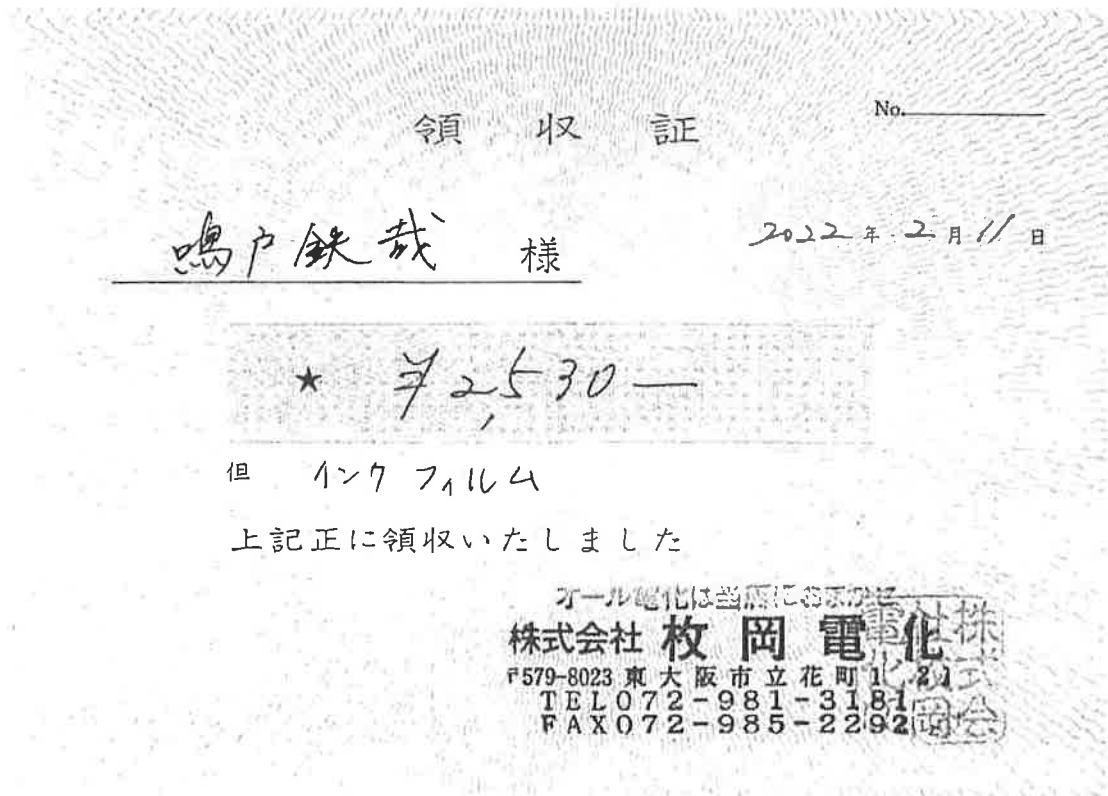 No.
領収証
鳴戸鉄哉 様
2022年2月11日
★ ¥2,530—
但 インクフィルム
上記正に領収いたしました
オール電化は当店におまかせ
株式会社 枚岡電化
〒579-8023 東大阪市立花町1-21
TEL072-981-3181
FAX072-985-2292